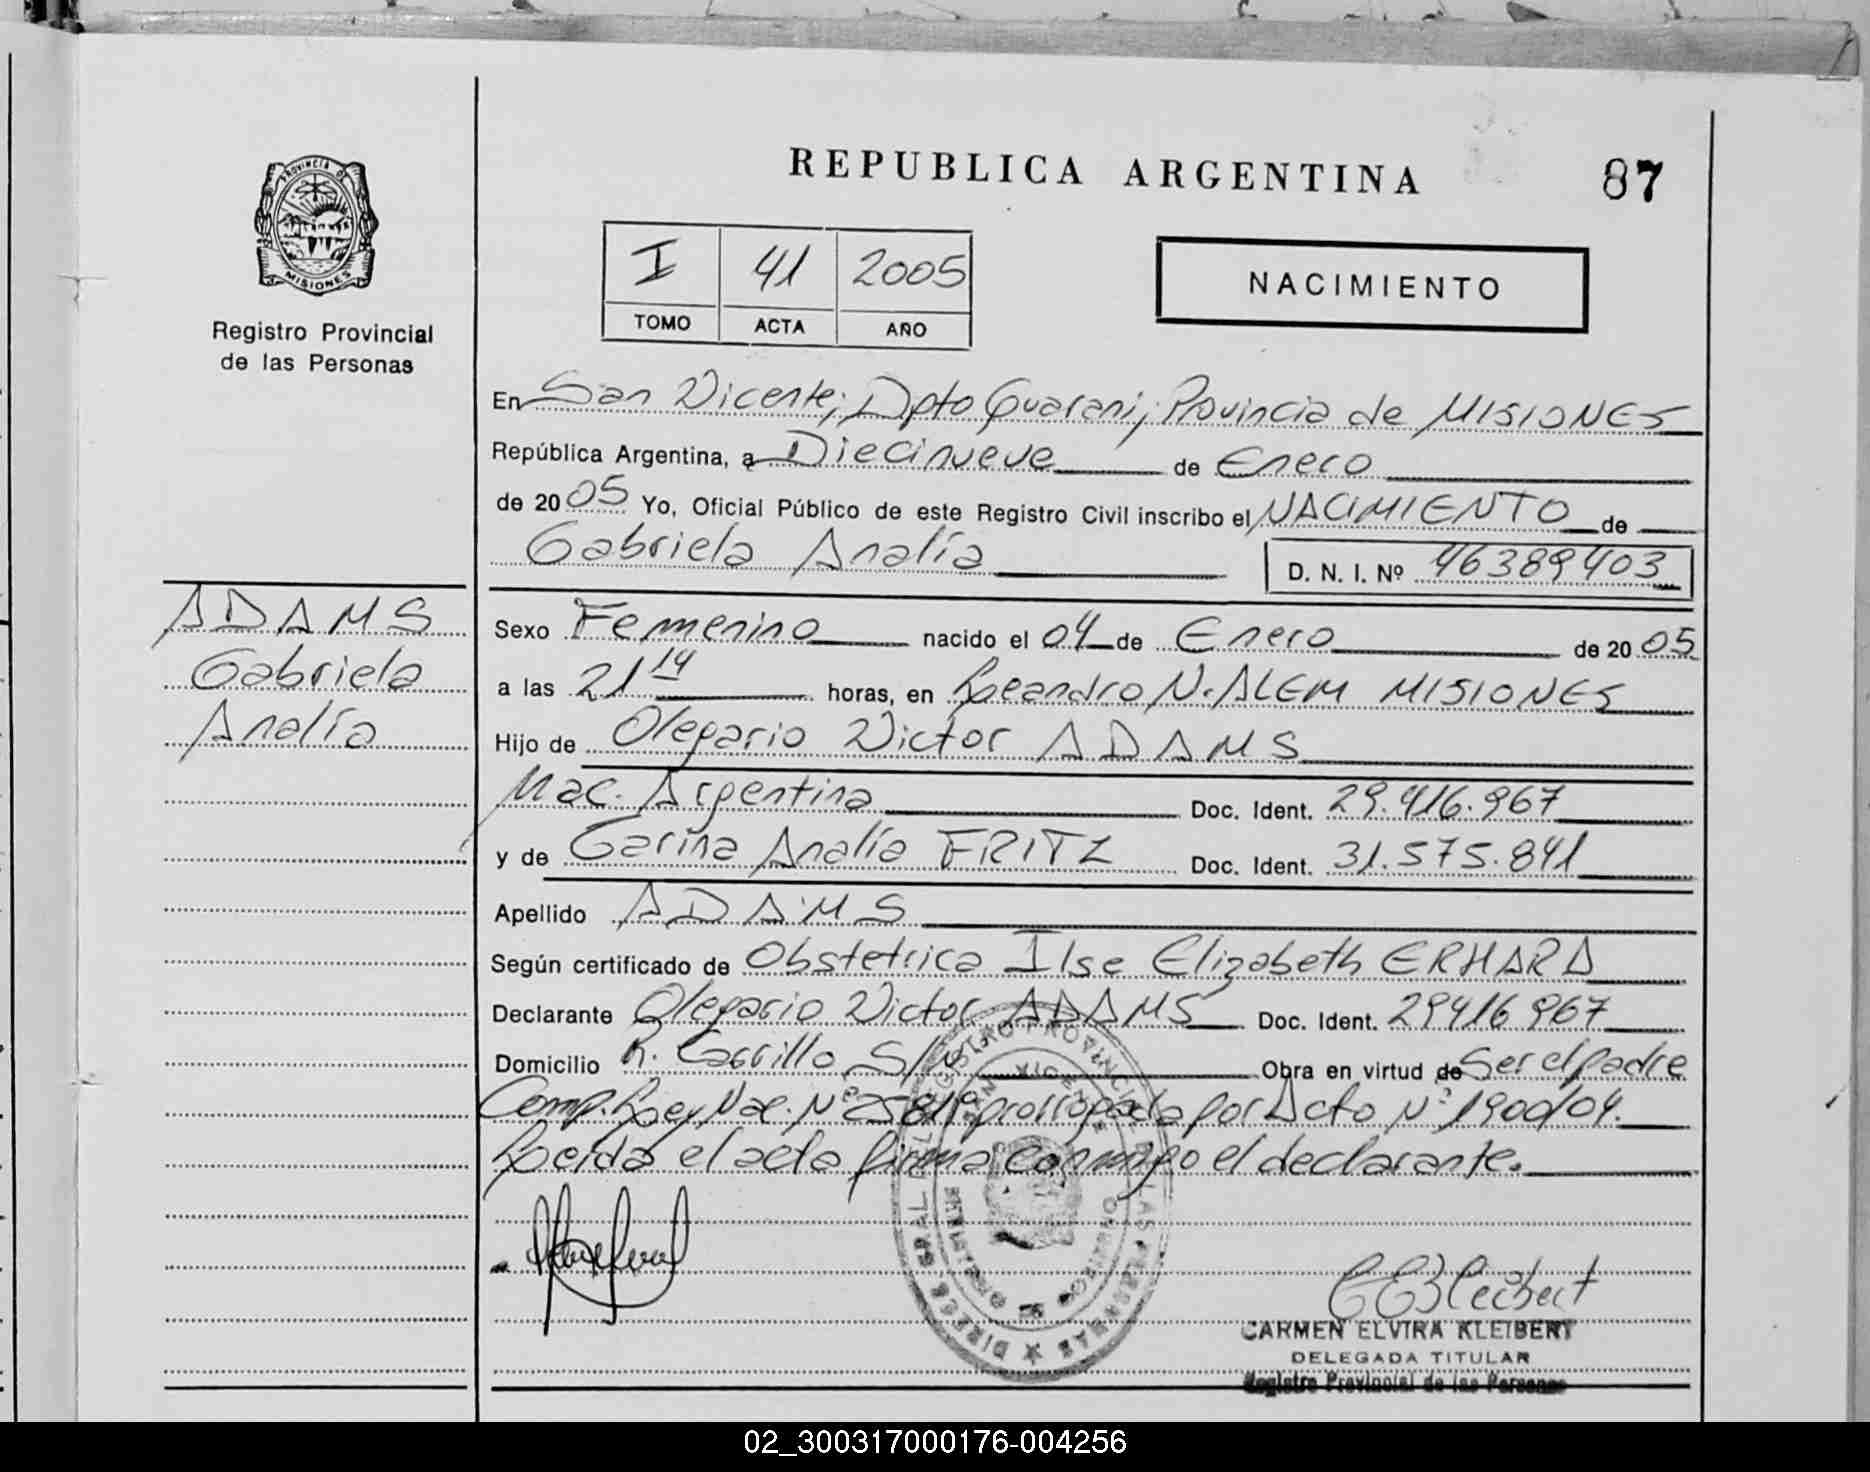 REPUBLICA ARGENTINA
87
PROVINCIA DE
MISIONES
Registro Provincial
de las Personas
I 41 2005
TOMO ACTA AÑO
NACIMIENTO
En San Vicente; Dpto Guarani; Provincia de MISIONES
República Argentina, a Diecinueve de Enero
de 2005 Yo, Oficial Público de este Registro Civil inscribo el NACIMIENTO de
Gabriela Analía D. N. I. Nº 46389403
ADAMS
Gabriela
Analía
Sexo Femenino nacido el 04 de Enero de 2005
a las 21 14 horas, en Leandro N. ALEM MISIONES
Hijo de Olegario Victor ADAMS
Nac. Argentina Doc. Ident. 29.416.967
y de Carina Analía FRITZ Doc. Ident. 31.575.841
Apellido ADAMS
Según certificado de Obstetrica Ilse Elizabeth ERHARD
Declarante Olegario Victor ADAMS Doc. Ident. 29416967
Domicilio R. Carrillo S/N Obra en virtud de Ser el padre
Comp. Ley Nac. Nº 25819 prorrogada por Dcto Nº 1900/04.
Leida el acta firma conmigo el declarante.
CARMEN ELVIRA KLEIBERT
DELEGADA TITULAR
Registro Provincial de las Personas
02_300317000176-004256